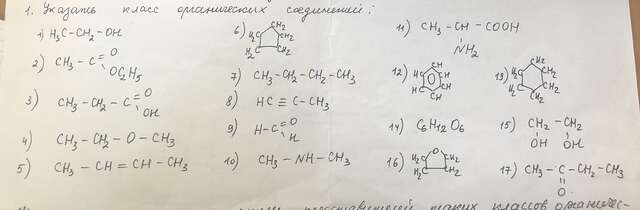 1. Указать класс органических соединений:
1) H₃C–CH₂–OH
2) CH₃–C(=O)–OC₂H₅
3) CH₃–CH₂–C(=O)–OH
4) CH₃–CH₂–O–CH₃
5) CH₃–CH=CH–CH₃
6) CH₂ H₂C CH₂ H₂C CH₂
7) CH₃–CH₂–CH₂–CH₃
8) HC≡C–CH₃
9) H–C(=O)–H
10) CH₃–NH–CH₃
11) CH₃–CH–COOH
NH₂
12) CH HC CH HC CH CH
13) CH₂ H₂C CH₂ H₂C CH₂ CH₂
14) C₆H₁₂O₆
15) CH₂–CH₂
OH OH
16) O H₂C CH₂ H₂C CH₂
17) CH₃–C–CH₂–CH₃
O
таких классов органичес-